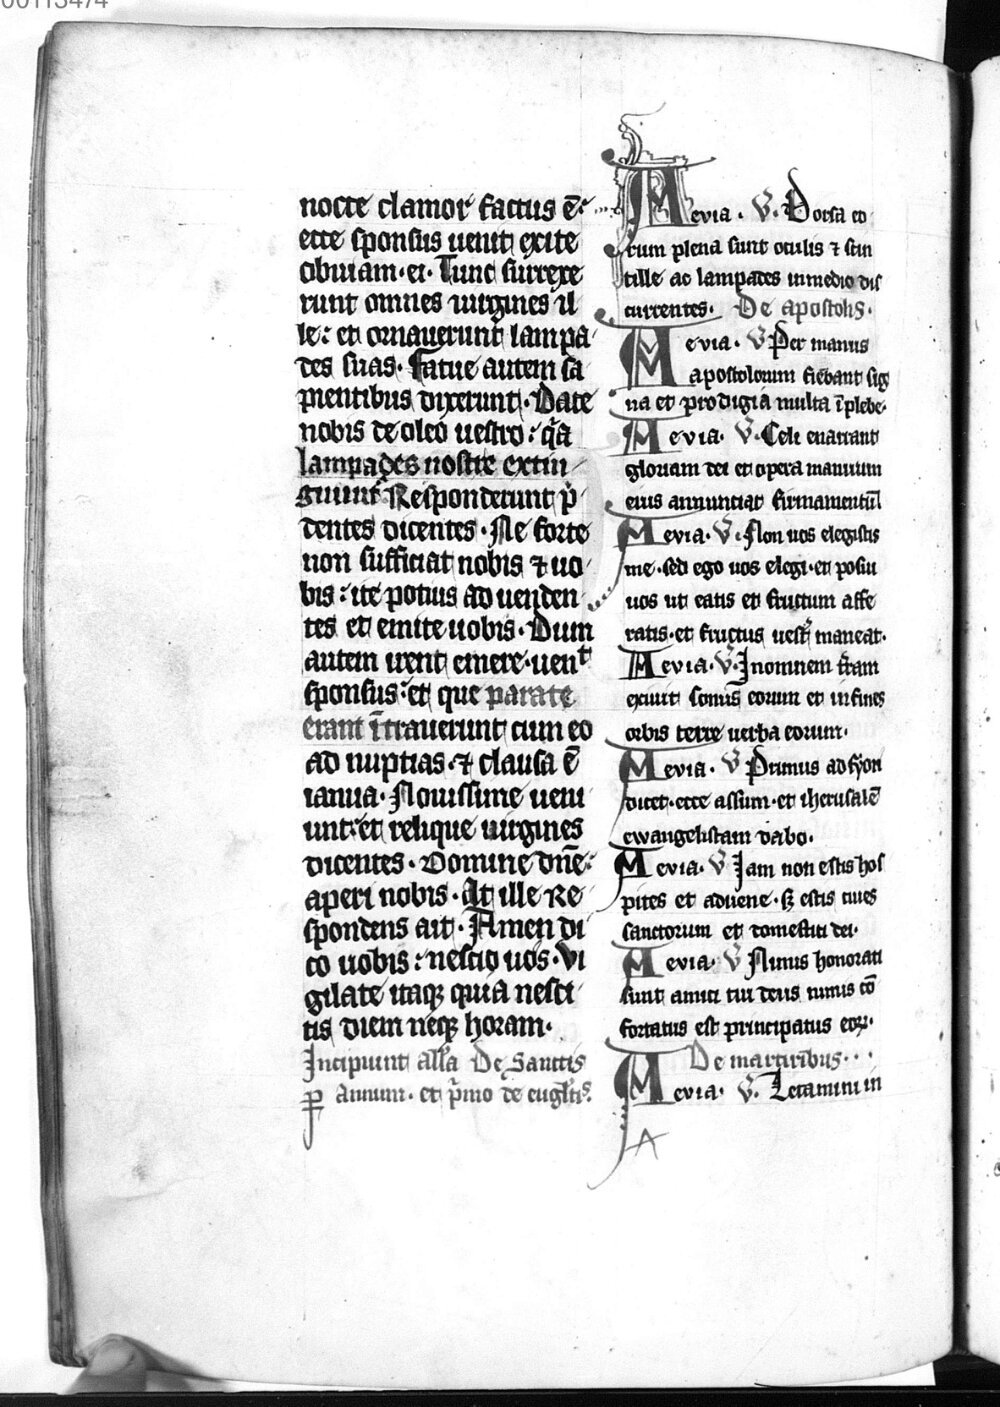 00113474
nocte clamor factus ē·
ecce sponsus uenit exite
obuiam·ei· Tunc surrexe
runt omnes uirgines il
le: et ornauerunt lampa
des suas· Fatue autem sa
pientibus dixerunt· Date
nobis de oleo uestro: q̄a
lampades nostre extin
guunt̄ Responderunt p̄
dentes dicentes· Ne forte
non sufficiat nobis ⁊ uo
bis: ite potius ad uenden
tes et emite uobis· Dum
autem irent emere· uenͭ
sponsus: et que parate
erant ītrauerunt cum eo
ad nuptias· ⁊ clausa ē
ianua· Nouissime ueni
unt et relique uirgines
dicentes· Domine dn̄e:
aperi nobis· At ille Re
spondens ait· Amen di
co uobis: nescio uos· Vi
gilate itaqꝫ quia nesci
tis diem neqꝫ horam·
Incipiunt all̄a De Sanctis
ꝑ Annum· et p̄mo de eugl̄tis·
Aevia· V· Dorsa eo
rum plena sunt oculis ⁊ scin
tille ac lampades in medio dis
currentes· De apostolis·
Aevia· V Per manus
apostolorum fiebant sig
na et prodigia multa ī plebe·
Aevia· V· Celi enarrant
gloriam dei et opera manuum
eius annunciat firmamentū
Aevia· V· Non uos elegistis
me· sed ego uos elegi· et posui
uos ut eatis et fructum affe
ratis· et fructus uesť maneat·
Aevia· V· In omnem t̄ram
exiuit sonus eorum et in fines
orbis terre uerba eorum·
Aevia· V Primus ad syon
dicet· ecce assum· et iherusalē
ewangelistam dabo·
Aevia· V Iam non estis hos
pites et aduene· sꝫ estis ciues
sanctorum et domestici dei·
Aevia· V Nimis honorati
sunt amici tui deus nimis cō
fortatus est principatus eoꝝ·
De martiribus···
Aevia· V· Letamini in
A